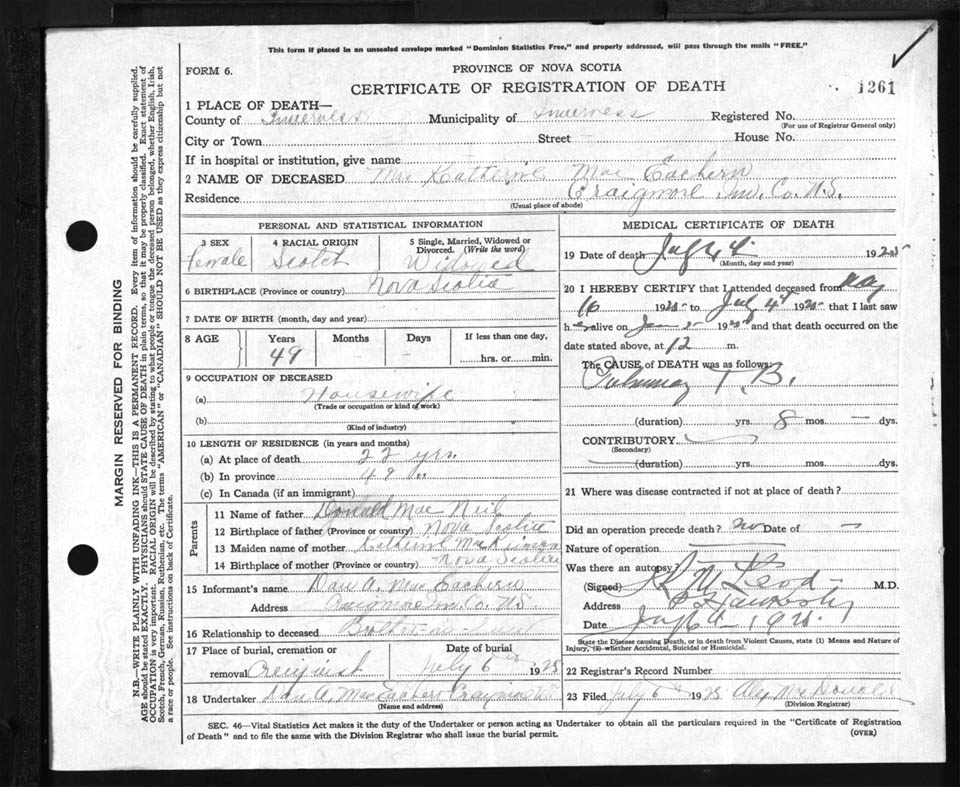 This form if placed in an unsealed envelope marked "Dominion Statistics Free," and properly addressed, will pass through the mails "FREE."
FORM 6.
PROVINCE OF NOVA SCOTIA
CERTIFICATE OF REGISTRATION OF DEATH
1261
1 PLACE OF DEATH—
County of Inverness Municipality of Inverness Registered No.
(For use of Registrar General only)
City or Town Street House No.
If in hospital or institution, give name
2 NAME OF DECEASED Mrs Katherine Mac Eachern
Residence Craigmore Inv. Co. N.S.
(Usual place of abode)
PERSONAL AND STATISTICAL INFORMATION
3 SEX
female
4 RACIAL ORIGIN
Scotch
5 Single, Married, Widowed or Divorced. (Write the word)
Widowed
6 BIRTHPLACE (Province or country) Nova Scotia
7 DATE OF BIRTH (month, day and year)
8 AGE
Years Months Days If less than one day,
49 - - hrs. or min.
9 OCCUPATION OF DECEASED
(a) Housewife
(Trade or occupation or kind of work)
(b)
(Kind of industry)
10 LENGTH OF RESIDENCE (in years and months)
(a) At place of death 22 yrs.
(b) In province 49 "
(c) In Canada (if an immigrant)
Parents
11 Name of father Donald Mac Neil
12 Birthplace of father (Province or country) Nova Scotia
13 Maiden name of mother Katherine
14 Birthplace of mother (Province or country) Nova Scotia
15 Informant's name Dan A. Mac Eachern
Address Craigmore Inv. Co. N.S.
16 Relationship to deceased Brother-in-law
17 Place of burial, cremation or removal Creignish
Date of burial July 6th 1925
18 Undertaker Dan A. MacEachern Craigmore
(Name and address)
MEDICAL CERTIFICATE OF DEATH
19 Date of death July 4. 1925
(Month, day and year)
20 I HEREBY CERTIFY that I attended deceased from May
16 1925 to July 4th 1925 that I last saw
her alive on 1925 and that death occurred on the
date stated above, at 12 m.
The CAUSE of DEATH was as follows:
Pulmonary T.B.
(duration) yrs. 8 mos. — dys.
CONTRIBUTORY
(Secondary)
(duration) yrs. mos. dys.
21 Where was disease contracted if not at place of death?
Did an operation precede death? no Date of —
Nature of operation
Was there an autopsy?
(Signed) M.D.
Address
Date July 6th 1925
State the Disease causing Death, or in death from Violent Causes, state (1) Means and Nature of Injury, (2) whether Accidental, Suicidal or Homicidal.
22 Registrar's Record Number
23 Filed July 6th 1925 Alex McDonald
(Division Registrar)
SEC. 46—Vital Statistics Act makes it the duty of the Undertaker or person acting as Undertaker to obtain all the particulars required in the "Certificate of Registration
of Death" and to file the same with the Division Registrar who shall issue the burial permit.
(OVER)
MARGIN RESERVED FOR BINDING
N.B.—WRITE PLAINLY WITH UNFADING INK—THIS IS A PERMANENT RECORD. Every item of information should be carefully supplied.
AGE should be stated EXACTLY. PHYSICIANS should STATE CAUSE OF DEATH in plain terms, so that it may be properly classified. Exact statement of
OCCUPATION is very important. RACIAL ORIGIN will be described by stating to what people or tongue the deceased person belonged, whether English, Irish,
Scotch, French, German, Russian, Ruthenian, etc. The terms "AMERICAN" or "CANADIAN" SHOULD NOT BE USED as they express citizenship but not
a race or people. See instructions on back of Certificate.